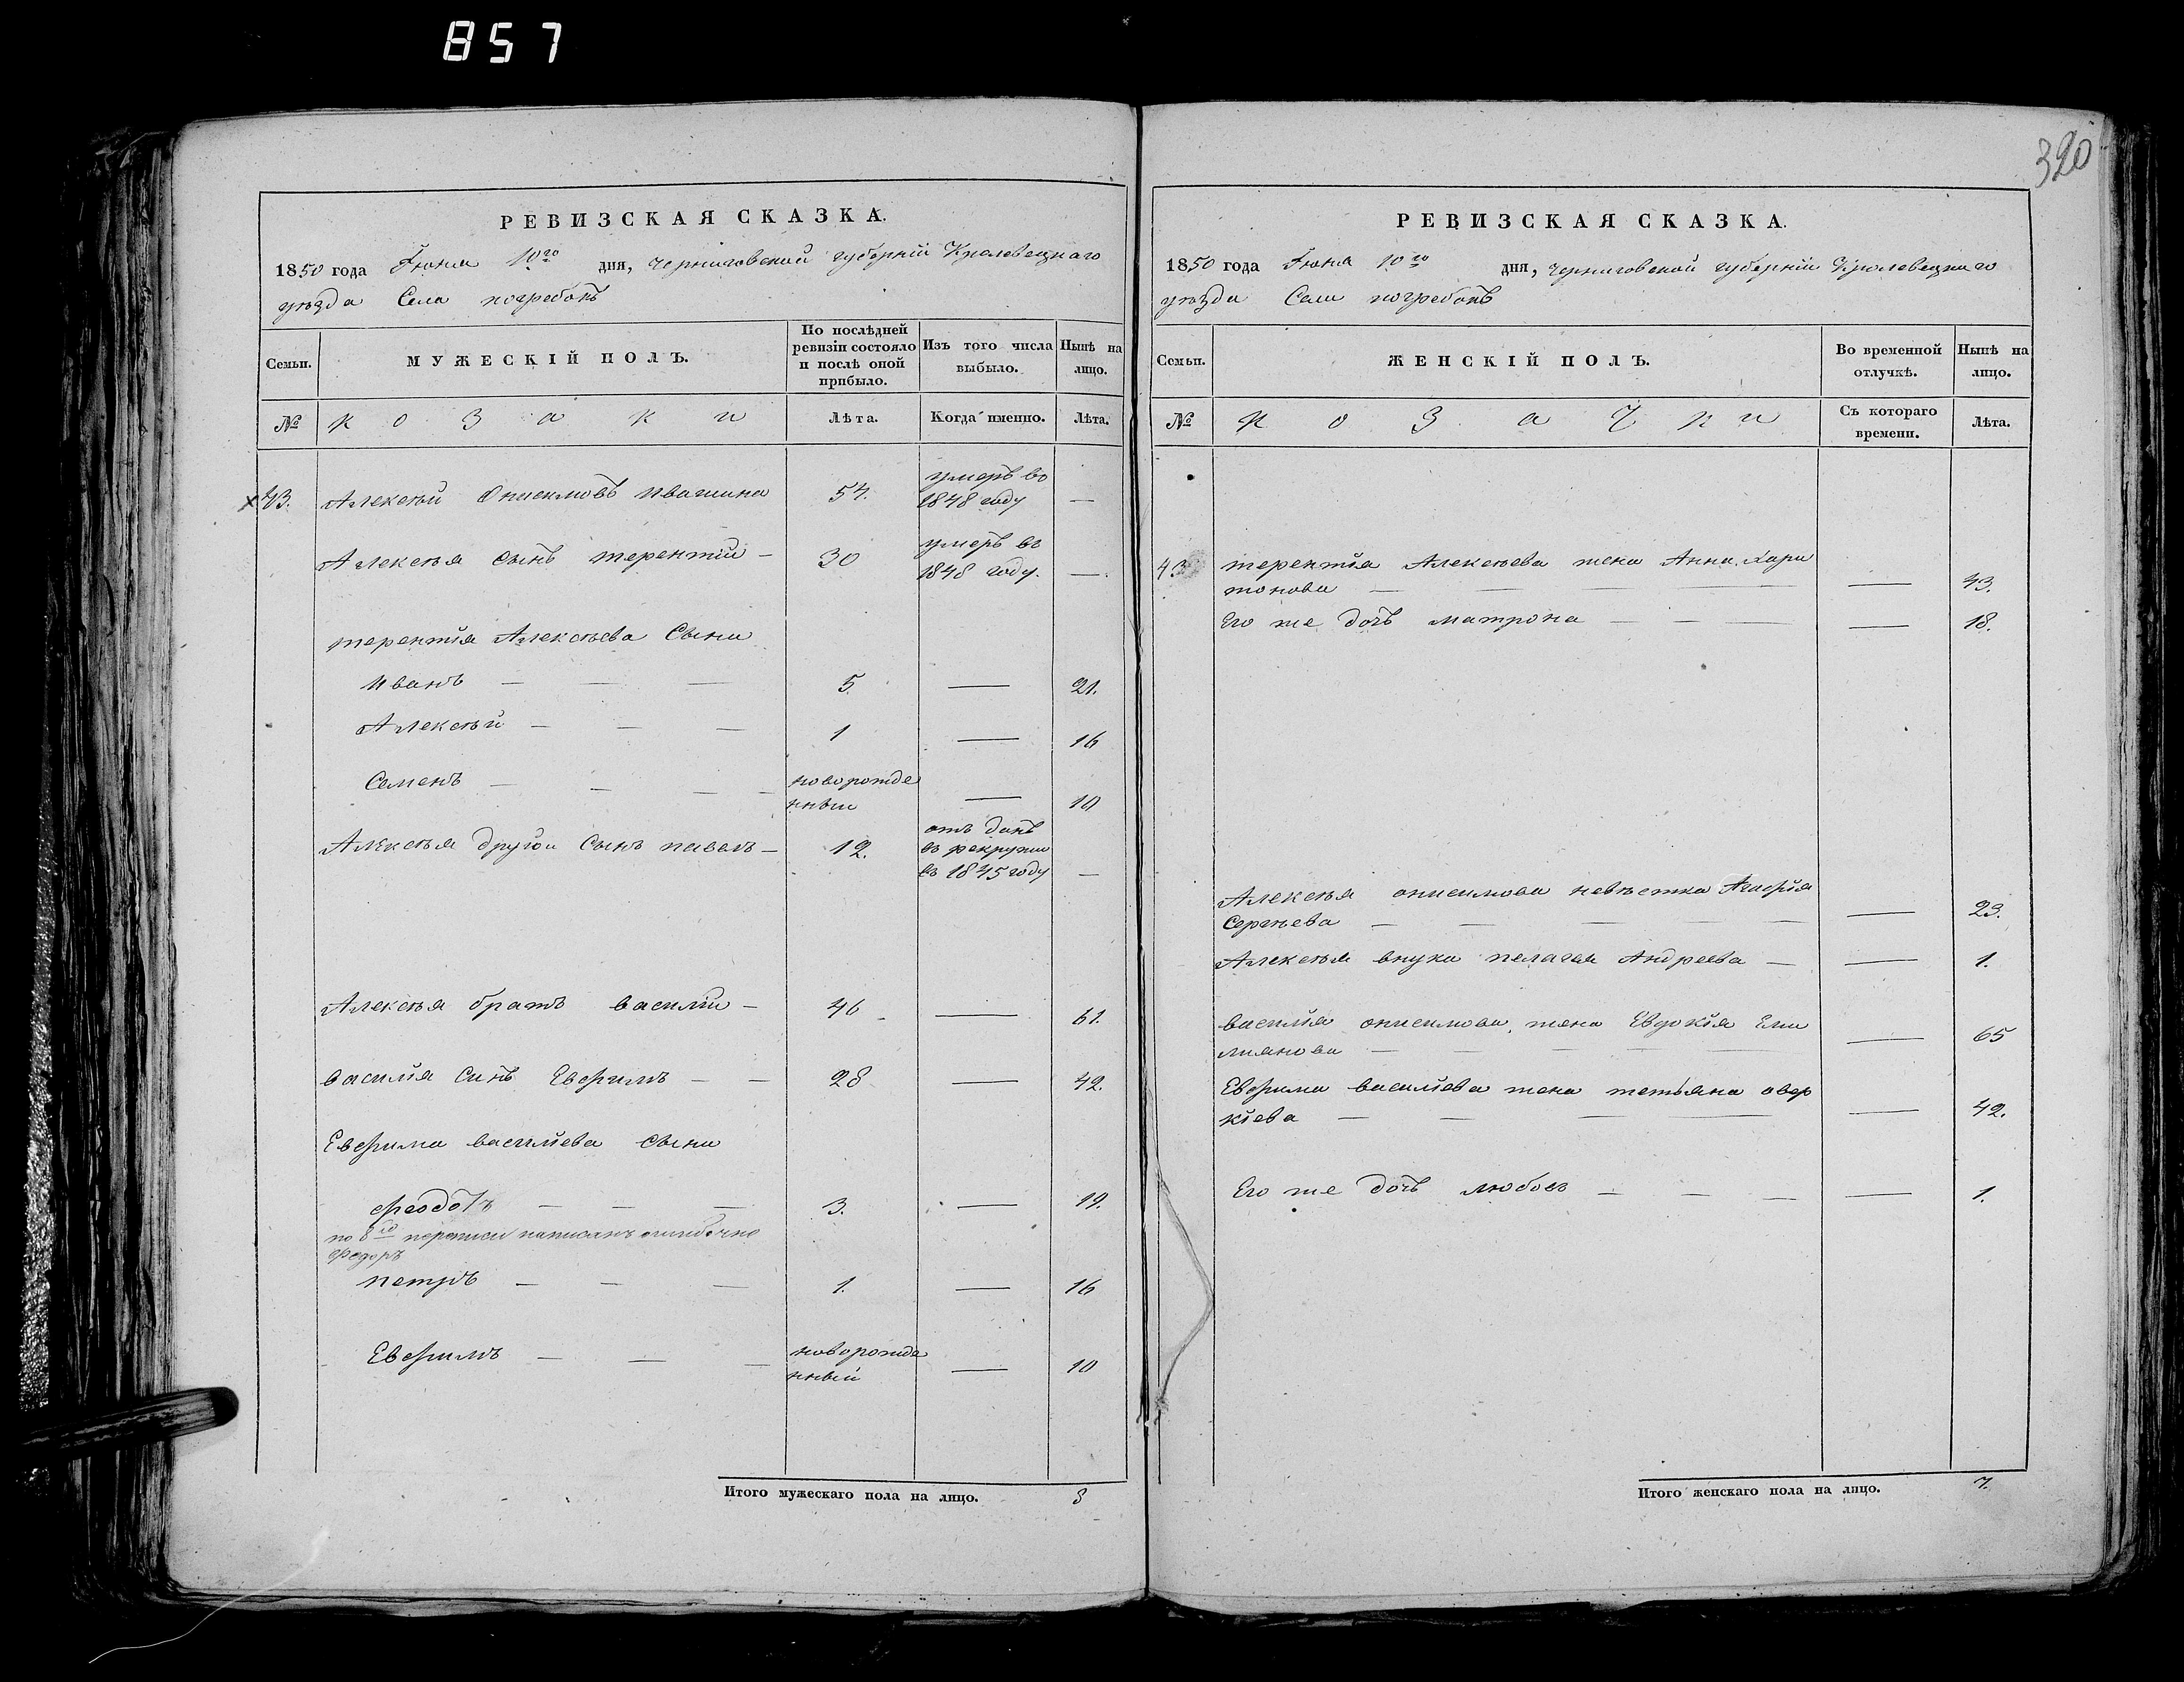 857
320
РЕВИЗСКАЯ СКАЗКА.
1850 года Іюня 10го дня, Черниговской губерніи Кролевецкаго
уѣзда Села погребокъ
Семьи.
МУЖЕСКІЙ ПОЛЪ.
По послѣдней
ревизіи состояло
и послѣ оной
прибыло.
Изъ того числа
выбыло.
Нынѣ на
лицо.
№
козаки
Лѣта.
Когда именно.
Лѣта.
х 43. Алексѣй Онисимовъ Ивашина 54. умеръ во
1848 году —
Алексѣя сынъ терентій — 30 умеръ въ
1848 году. —
терентія Алексѣева Сыни
Иванъ — — — 5. — 21.
Алексѣй — — — 1 — 16
Семенъ — — — новорожде
нный — 10
Алексѣя другои Сынъ павелъ — 12. отъ данъ
въ рекруты
въ 1845 году —
Алексѣя братъ василій — 46 — 61.
василія Синъ Евфимъ — — 28 — 42.
Евфима василіева Сыни
феодотъ — — — 3. — 19.
по 8й переписи написанъ ошибочно
Федоръ
петръ — — — 1. — 16
Евфимъ — — — новорожде
нный — 10
Итого мужескаго пола на лицо. 8
РЕВИЗСКАЯ СКАЗКА.
1850 года Іюня 10го дня, Черниговской губерніи Кролевецкаго
уѣзда Села погребокъ
Семьи.
ЖЕНСКІЙ ПОЛЪ.
Во временной
отлучкѣ.
Нынѣ на
лицо.
№
козачки
Съ котораго
времени.
Лѣта.
43 терентія Алексѣева жена Анна Хари
тонова — — — — 43.
Его же дочъ матрона — — — — 18.
Алексѣя онисимова невѣстка
Сергѣева — — — — — 23.
Алексѣя внука пелагея Андреева — — 1.
василія онисимова жена Евдокія Еми
лиянова — — — — — 65
Евфима василіева жена тетьяна овер
кіева — — — — 42.
Его же дочъ любовъ — — — — 1.
Итого женскаго пола на лицо. 7.